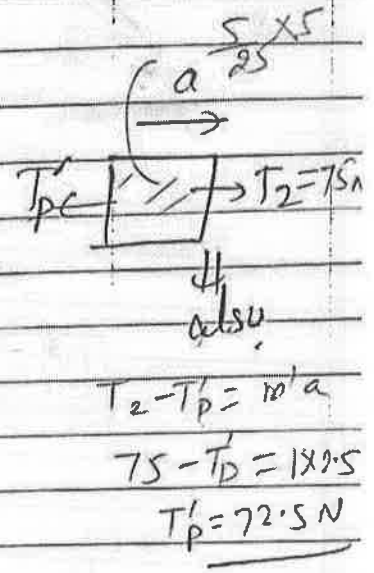 5/25 × 5
a
T'p
T2 = 75N
also
T2 - T'p = m'a
75 - T'p = 1×2.5
T'p = 72.5 N